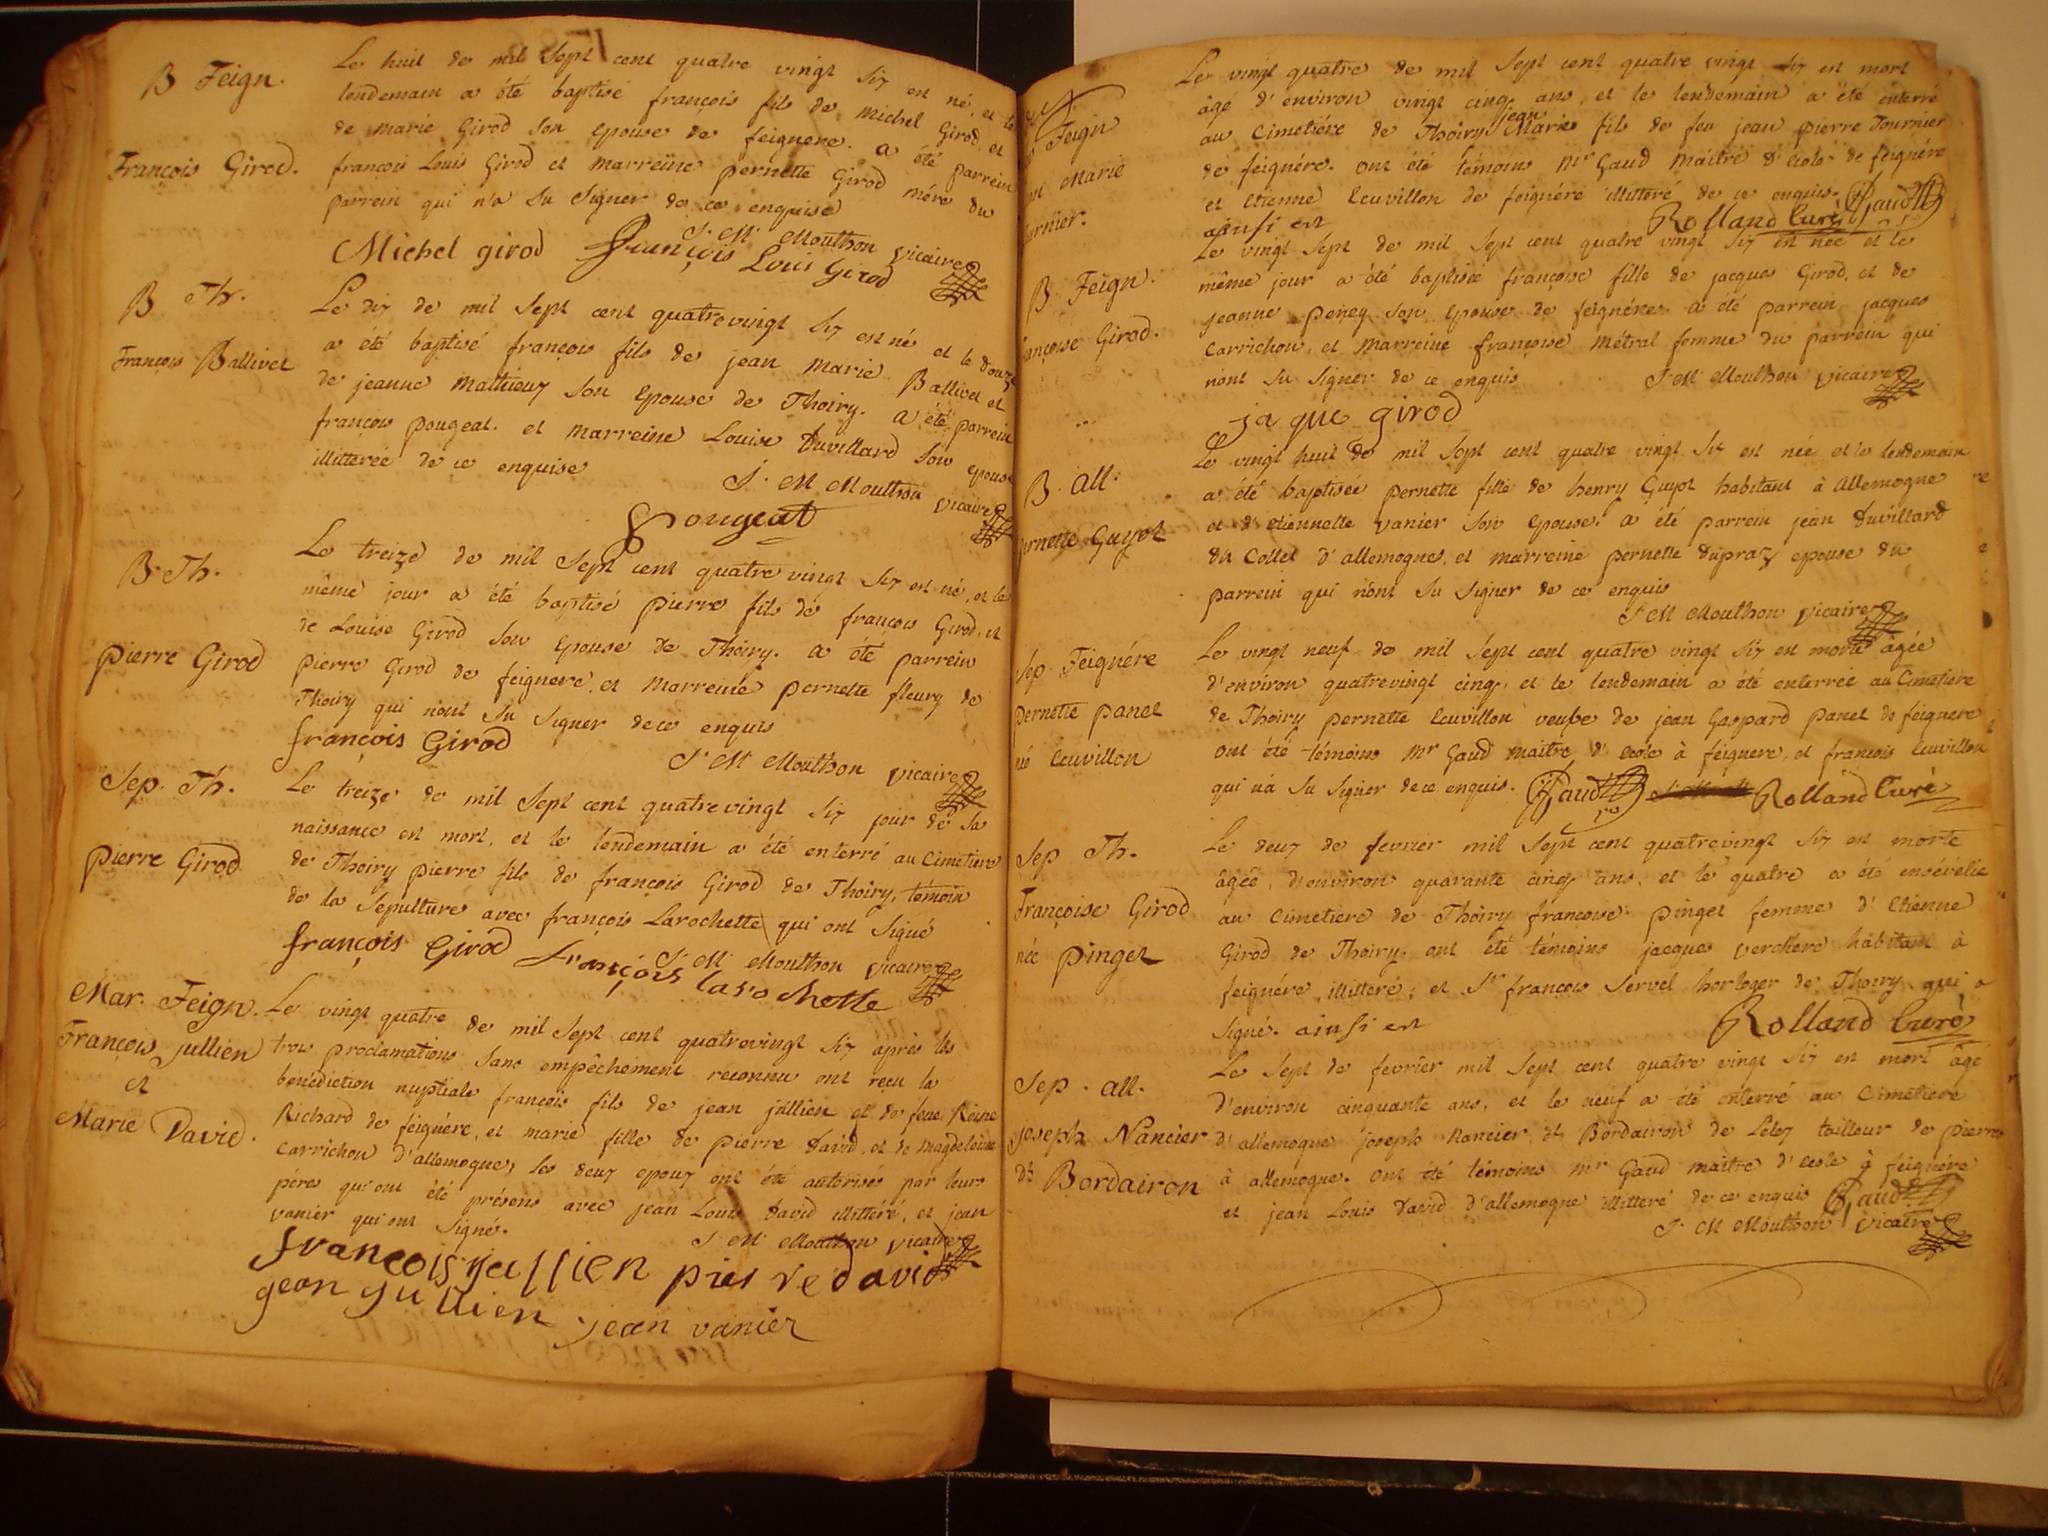 B Feign.
François Girod.
Le huit de mil sept cent quatre vingt six est né, et le
lendemain a été baptisé françois fils de Michel Girod, et
de marie Girod son epouse de feignere. a été parrein
françois Louis Girod et marreine pernette Girod mére du
parrein qui n'a su signer de ce enquise
J. M. Mouthon vicaire
Michel girod François Louis Girod
B Th.
François Ballivet
Le dix de mil sept cent quatrevingt six est né et le douze
a été baptisé françois fils de jean marie Ballivet et
de jeanne Mathieux son epouse de Thoiry. a été parrein
françois pougeat. et marreine Louise Duvillard son epouse
illitterée de ce enquise
J. M Mouthon vicaire
Pougeat
B. Th.
pierre Girod
Le treize de mil sept cent quatre vingt six est né, et le
même jour a été baptisé pierre fils de françois Girod, et
de Louise Girod son epouse de Thoiry. a été parrein
pierre Girod de feignere, et marreine pernette fleury de
Thoiry qui n'ont su signer de ce enquis
françois Girod
J. M Mouthon vicaire
Sep. Th.
pierre Girod
Le treize de mil sept cent quatrevingt six jour de sa
naissance est mort, et le lendemain a été enterré au Cimetiere
de Thoiry pierre fils de françois Girod de Thoiry, témoin
de la sépulture avec françois Larochette qui ont signé
J. M. Mouthon vicaire
françois Girod François larochette
Mar. Feign.
François jullien
et
Marie David.
Le vingt quatre de mil sept cent quatrevingt six après les
trois proclamations sans empêchement reconnu ont reçu la
benediction nuptiale françois fils de jean jullien et de feue Reine
Richard de feignére, et marie fille de pierre David, et de magdeleine
Carrichon d'allemogne, les deux epoux ont été autorisés par leurs
péres qui ont été présens avec jean Louis David illitteré, et jean
vanier qui ont signé.
J. M Mouthon vicaire
francois jullien pierre david
gean jullien jean vanier
Feign
Marie
Le vingt quatre de mil sept cent quatre vingt six est mort
âgé d'environ vingt cinq ans, et le lendemain a été enterré
au Cimetiére de Thoiry jean Marie fils de feu jean pierre Tournier
de feignére. ont été témoins mr Gaud maitre d'ecole de feignére
et etienne Cuvillon de feignére illitteré de ce enquis.
ainsi est Rolland Curé Gaud
B. Feign.
ançoise Girod.
Le vingt sept de mil sept cent quatre vingt six est née et le
même jour a été baptisée françoise fille de jacques Girod, et de
jeanne peney son epouse de feignére a été parrein jacques
Carrichon, et marreine françoise Métral femme du parrein qui
n'ont su signer de ce enquis J. M Mouthon vicaire
jaque girod
B. all.
ernette Guyot
Le vingt huit de mil sept cent quatre vingt six est née et le lendemain
a été baptisée pernette fille de henry Guyot habitant à Allemogne
et d'etiennette vanier son epouse. a été parrein jean Duvillard
du Collet d'allemogne, et marreine pernette Dupraz epouse du
parrein qui n'ont su signer de ce enquis
J M Mouthon vicaire
Sep. Feignére
pernette panet
né Cuvillon
Le vingt neuf de mil sept cent quatre vingt six est morte âgée
d'environ quatrevingt cinq, et le lendemain a été enterrée au Cimetiére
de Thoiry pernette Cuvillon veuve de jean Gaspard panet de feignere
ont été témoins Mr Gaud maitre d'ecole à feignere, et françois Cuvillon
qui n'a su signer de ce enquis. Gaud Rolland Curé
Sep Th.
Françoise Girod
née pinget
Le deux de fevrier mil sept cent quatrevingt six est morte
âgée, d'environ quarante cinq ans, et le quatre a été ensévélie
au cimetiere de Thoiry françoise pinget femme d'Etienne
Girod de Thoiry, ont été témoins jacques verchere habitant à
feignére illitteré; et Sr françois Servel horloger de Thoiry qui a
signé. ainsi est Rolland Curé
Sep. all.
joseph Nancier
dt Bordairon
Le sept de fevrier mil sept cent quatre vingt six est mort âgé
d'environ cinquante ans, et le neuf a été enterré au Cimetiere
d'allemogne joseph Nancier dt Bordairon de Lelex tailleur de pierres
à allemogne. ont été témoins mr Gaud maitre d'ecole à feignére
et jean Louis David d'allemogne illitteré de ce enquis Gaud
J. M Mouthon vicaire